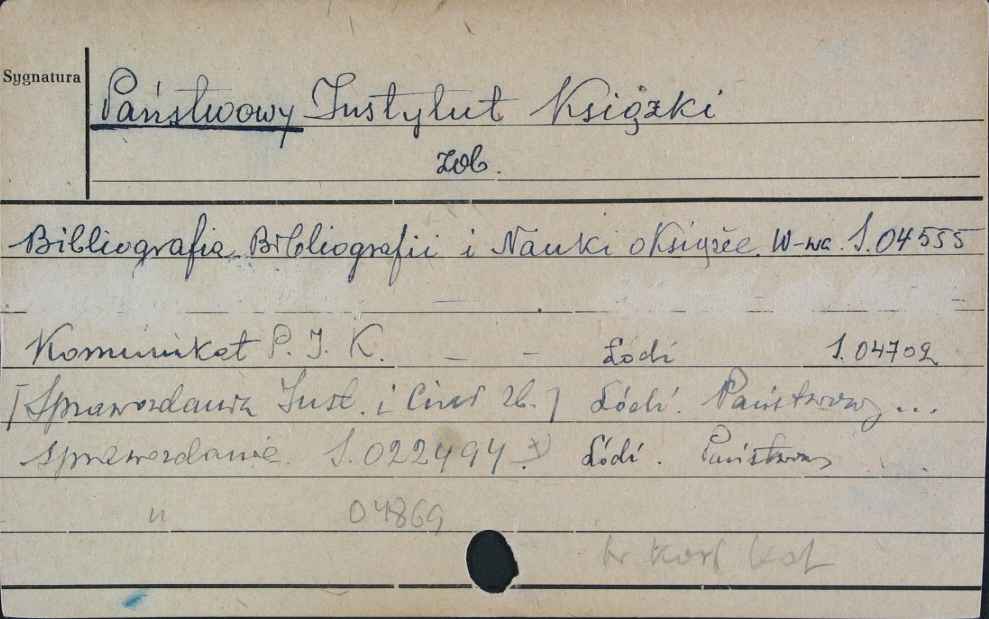 Sygnatura
Państwowy Instytut Książki
zob.
Bibliografia Bibliografii i Nauki o Książce. W-wa. S.04555
Komunikat P. I. K. — — Łódź S.04702
[Sprawozdania Inst. i ] Łódź. Państwowy...
Sprawozdanie S.022494 x) Łódź. Państwowy . .
" 04869
kat